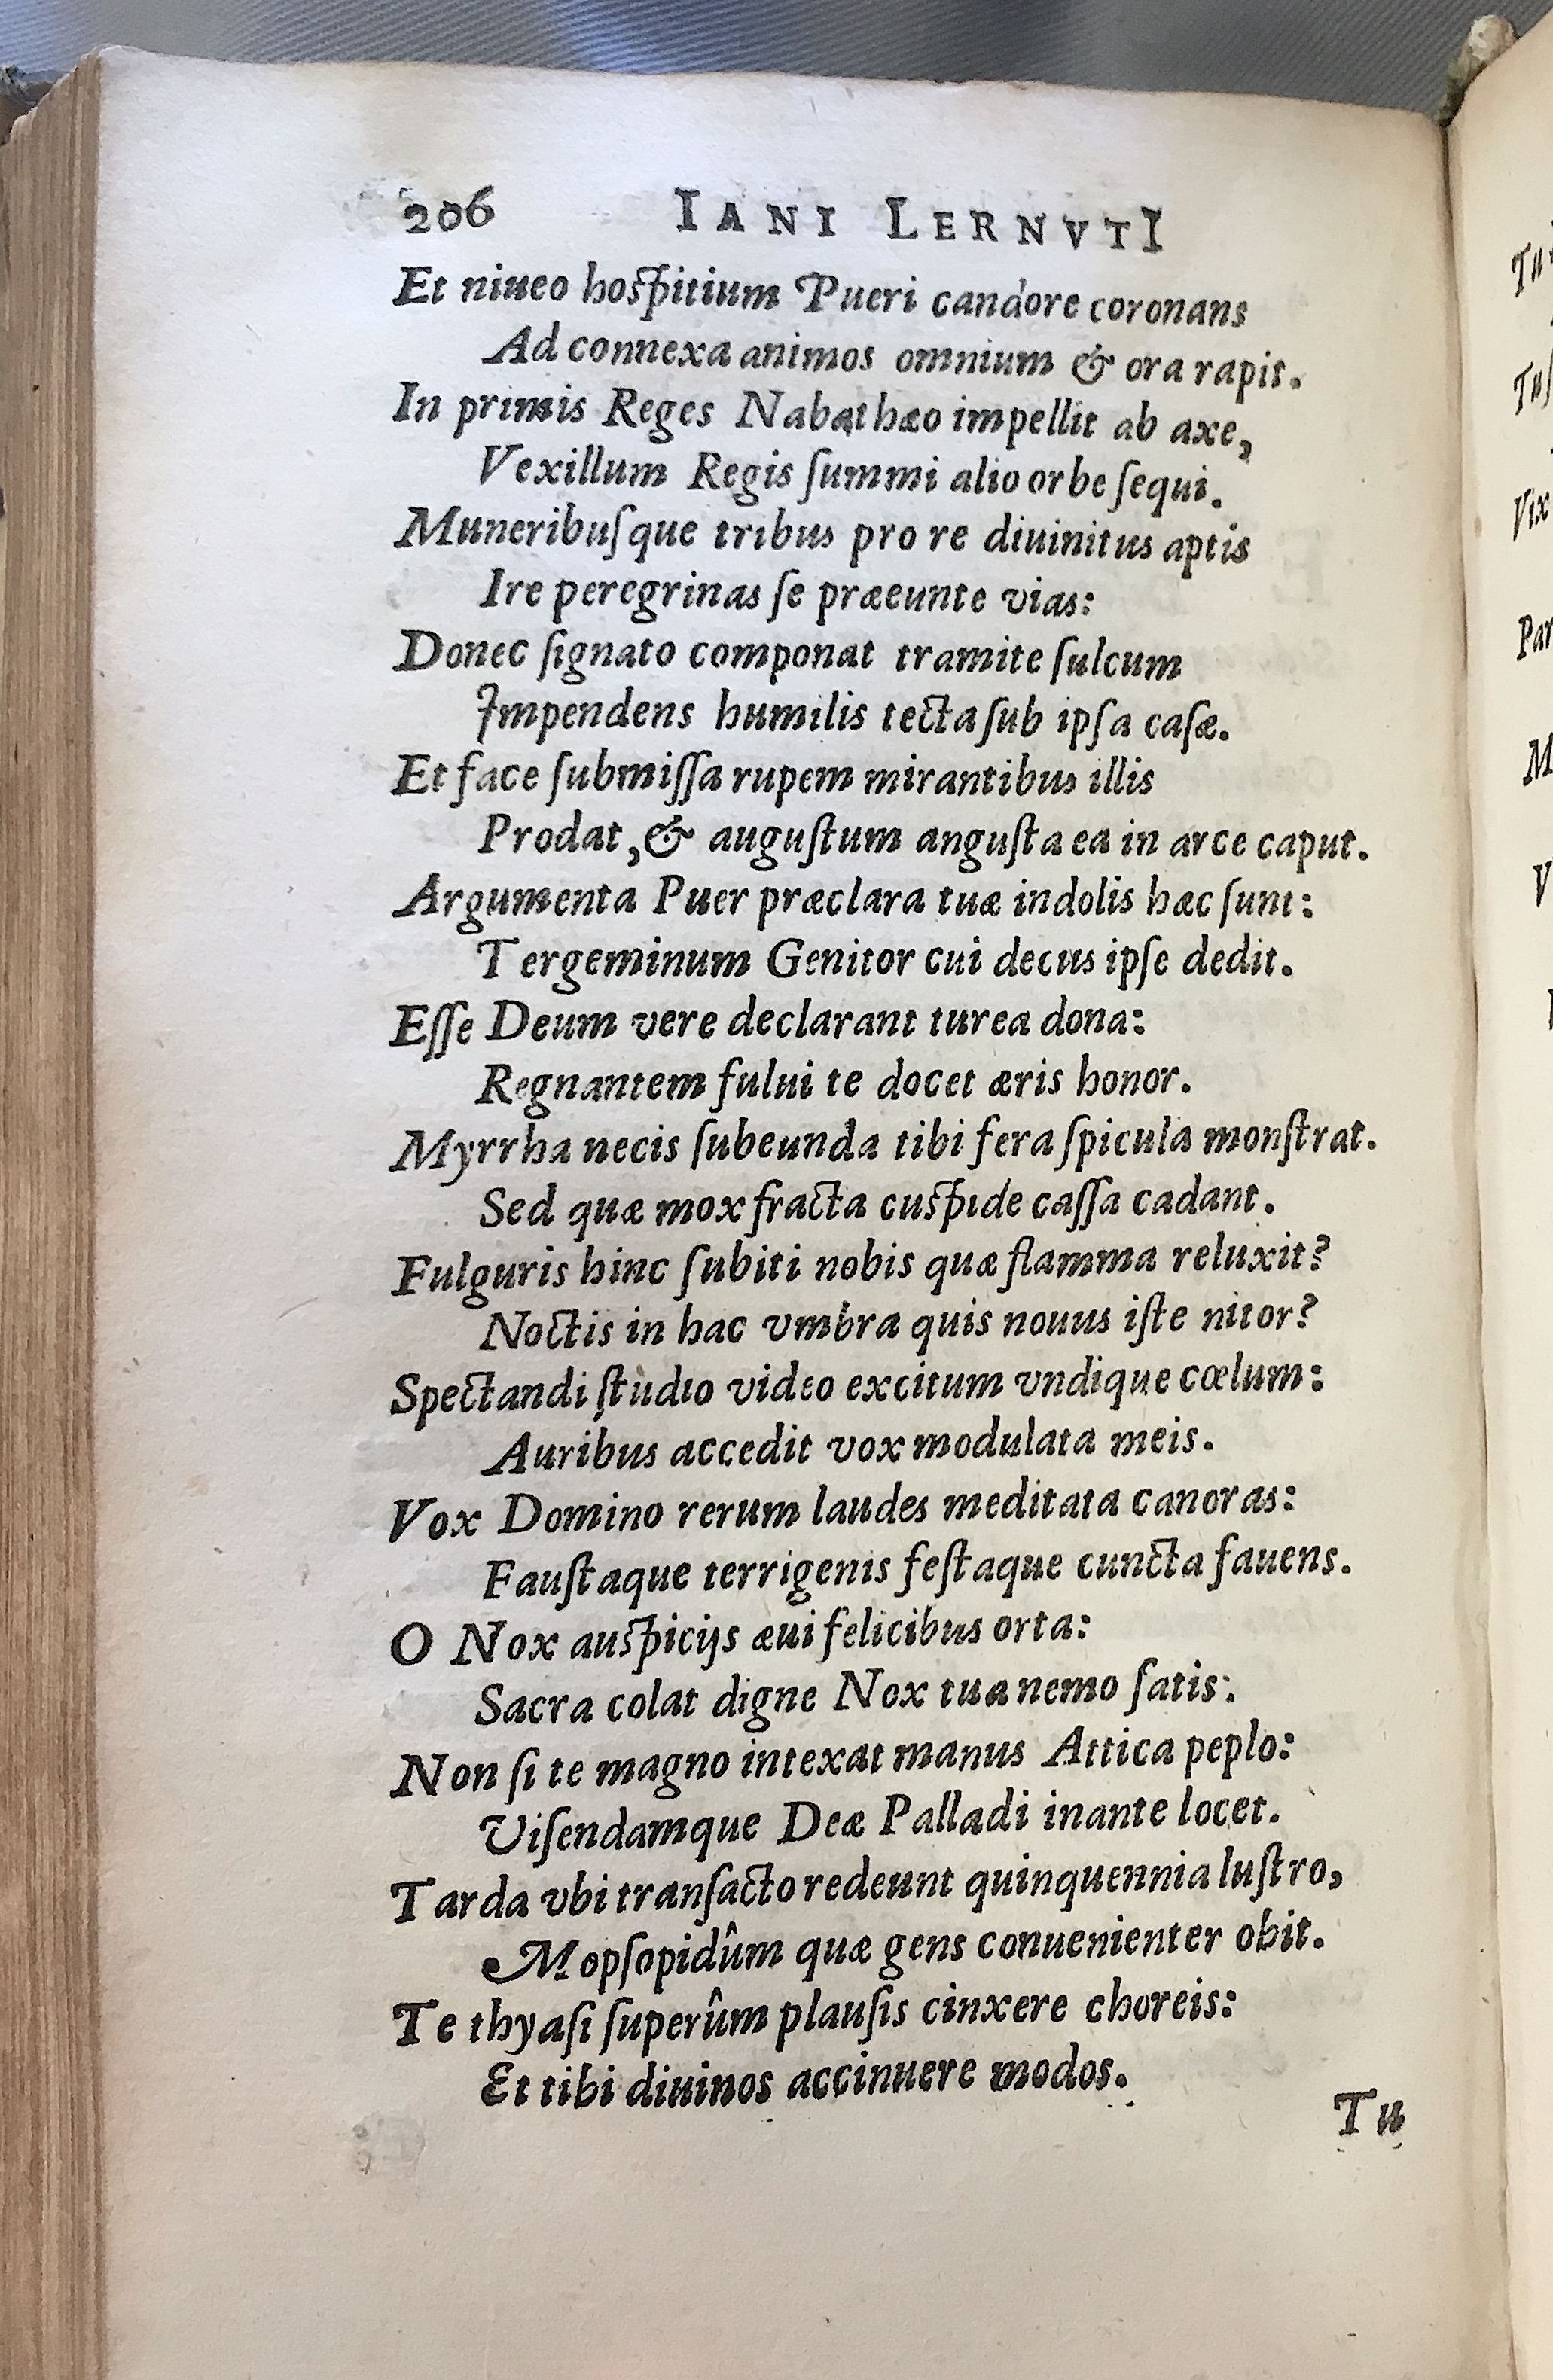 206 IANI LERNVTI
Et niueo hoſpitium Pueri candore coronans
Ad connexa animos omnium & ora rapit.
In primis Reges Nabathæo impellit ab axe,
Vexillum Regis ſummi alio orbe ſequi.
Muneribuſque tribus pro re diuinitus aptis
Ire peregrinas ſe præeunte vias:
Donec ſignato componat tramite ſulcum
Impendens humilis tecta ſub ipſa caſæ.
Et face ſubmiſſa rupem mirantibus illis
Prodat, & auguſtum anguſta ea in arce caput.
Argumenta Puer præclara tuæ indolis hæc ſunt:
Tergeminum Genitor cui decus ipſe dedit.
Eſſe Deum vere declarant turea dona:
Regnantem fului te docet æris honor.
Myrrha necis ſubeunda tibi fera ſpicula monſtrat.
Sed quæ mox fracta cuſpide caſſa cadant.
Fulguris hinc ſubiti nobis quæ flamma reluxit?
Noctis in hac vmbra quis nouus iſte nitor?
Spectandi ſtudio video excitum vndique cœlum:
Auribus accedit vox modulata meis.
Vox Domino rerum laudes meditata canoras:
Fauſtaque terrigenis feſtaque cuncta fauens.
O Nox auſpicijs æui felicibus orta:
Sacra colat digne Nox tua nemo ſatis:
Non ſi te magno intexat manus Attica peplo:
Viſendamque Deæ Palladi inante locet.
Tarda vbi tranſacto redeunt quinquennia luſtro,
Mopſopidûm quæ gens conuenienter obit.
Te thyaſi ſuperûm plauſis cinxere choreis:
Et tibi diuinos accinuere modos.
Tu